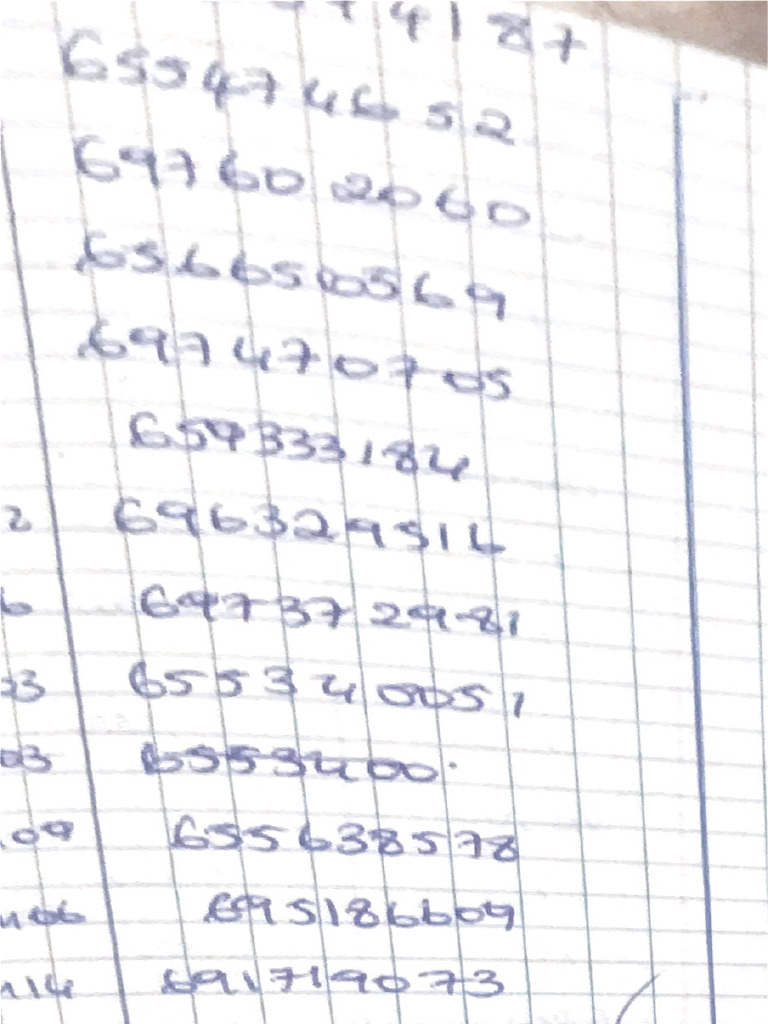 4187
655474652
697602060
656650569
697470705
659333184
2 696329516
6 697372981
23 655340051
03 6553400.
09 655638578
406 695186609
114 691719073